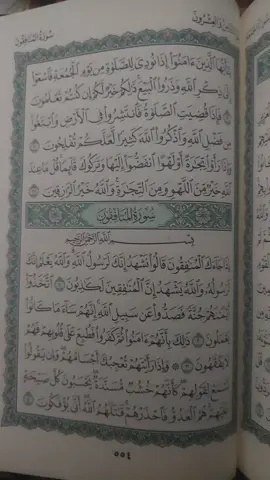 سورة المنافقون
يَٰٓأَيُّهَا ٱلَّذِينَ ءَامَنُوٓا۟ إِذَا نُودِىَ لِلصَّلَوٰةِ مِن يَوْمِ ٱلْجُمُعَةِ فَٱسْعَوْا۟
إِلَىٰ ذِكْرِ ٱللَّهِ وَذَرُوا۟ ٱلْبَيْعَ ذَٰلِكُمْ خَيْرٌ لَّكُمْ إِن كُنتُمْ تَعْلَمُونَ ٩
فَإِذَا قُضِيَتِ ٱلصَّلَوٰةُ فَٱنتَشِرُوا۟ فِى ٱلْأَرْضِ وَٱبْتَغُوا۟
مِن فَضْلِ ٱللَّهِ وَٱذْكُرُوا۟ ٱللَّهَ كَثِيرًا لَّعَلَّكُمْ تُفْلِحُونَ ١٠
وَإِذَا رَأَوْا۟ تِجَٰرَةً أَوْ لَهْوًا ٱنفَضُّوٓا۟ إِلَيْهَا وَتَرَكُوكَ قَآئِمًا قُلْ مَا عِندَ
ٱللَّهِ خَيْرٌ مِّنَ ٱللَّهْوِ وَمِنَ ٱلتِّجَٰرَةِ وَٱللَّهُ خَيْرُ ٱلرَّٰزِقِينَ ١١
سورة المنافقون
بِسْمِ ٱللَّهِ ٱلرَّحْمَٰنِ ٱلرَّحِيمِ
إِذَا جَآءَكَ ٱلْمُنَٰفِقُونَ قَالُوا۟ نَشْهَدُ إِنَّكَ لَرَسُولُ ٱللَّهِ وَٱللَّهُ يَعْلَمُ إِنَّكَ
لَرَسُولُهُۥ وَٱللَّهُ يَشْهَدُ إِنَّ ٱلْمُنَٰفِقِينَ لَكَٰذِبُونَ ١ ٱتَّخَذُوٓا۟
أَيْمَٰنَهُمْ جُنَّةً فَصَدُّوا۟ عَن سَبِيلِ ٱللَّهِ إِنَّهُمْ سَآءَ مَا كَانُوا۟
يَعْمَلُونَ ٢ ذَٰلِكَ بِأَنَّهُمْ ءَامَنُوا۟ ثُمَّ كَفَرُوا۟ فَطُبِعَ عَلَىٰ قُلُوبِهِمْ فَهُمْ
لَا يَفْقَهُونَ ٣ وَإِذَا رَأَيْتَهُمْ تُعْجِبُكَ أَجْسَامُهُمْ وَإِن يَقُولُوا۟
تَسْمَعْ لِقَوْلِهِمْ كَأَنَّهُمْ خُشُبٌ مُّسَنَّدَةٌ يَحْسَبُونَ كُلَّ صَيْحَةٍ
عَلَيْهِمْ هُمُ ٱلْعَدُوُّ فَٱحْذَرْهُمْ قَٰتَلَهُمُ ٱللَّهُ أَنَّىٰ يُؤْفَكُونَ ٤
٥٥٤